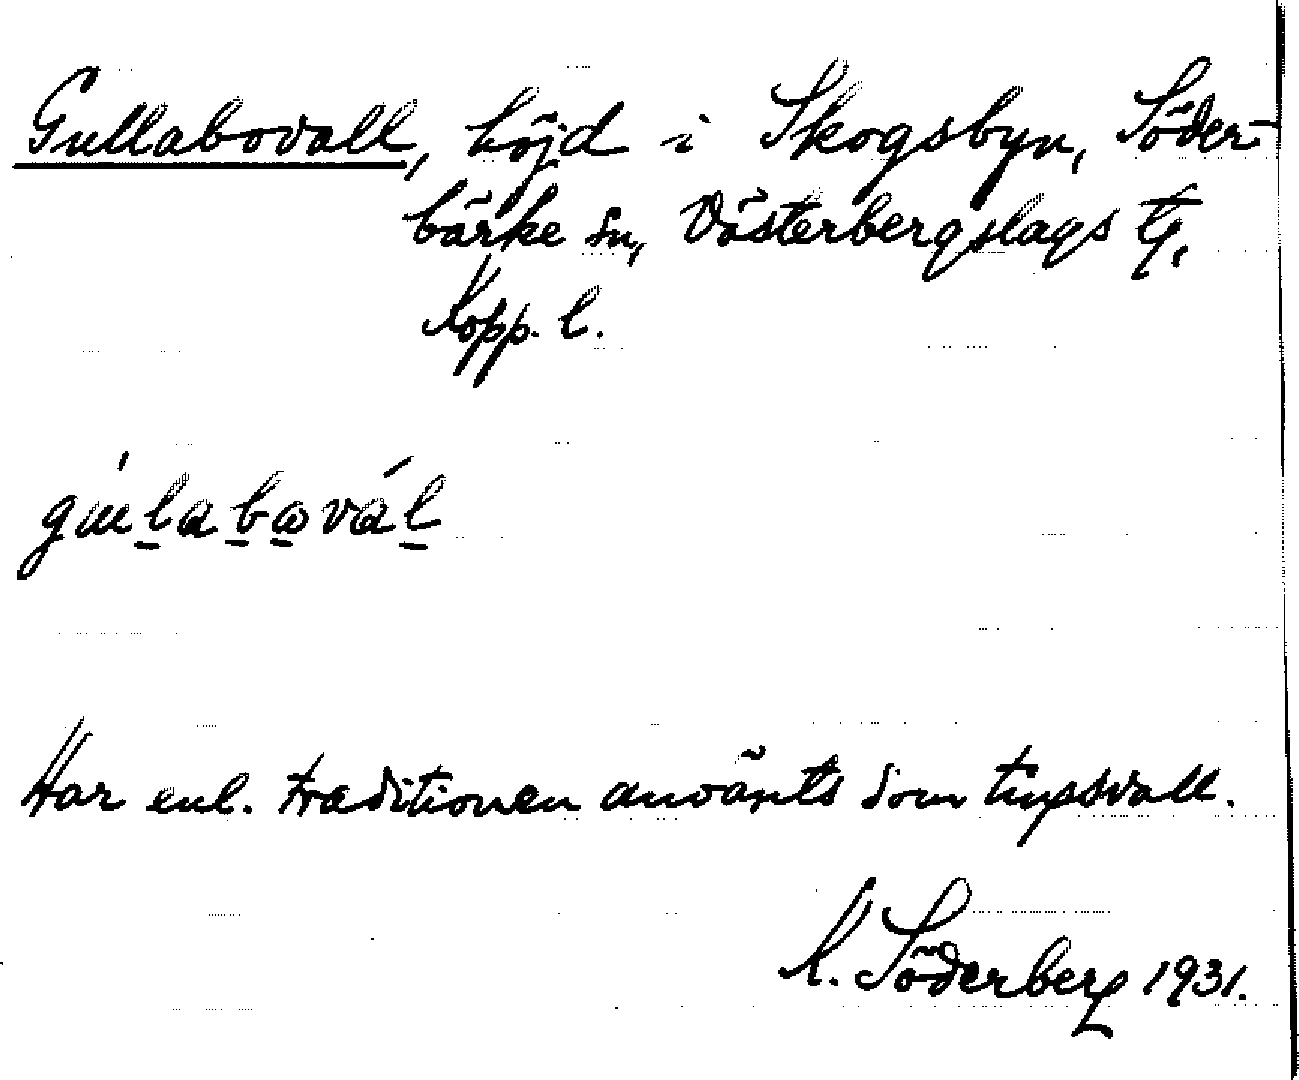 Gullabovall, höjd i Skogsbyn, Söder-
bärke sn, Västerbergslags tg,
Kopp. l.
Har enl. traditionen använts som tingsvall.
K. Söderberg 1931.